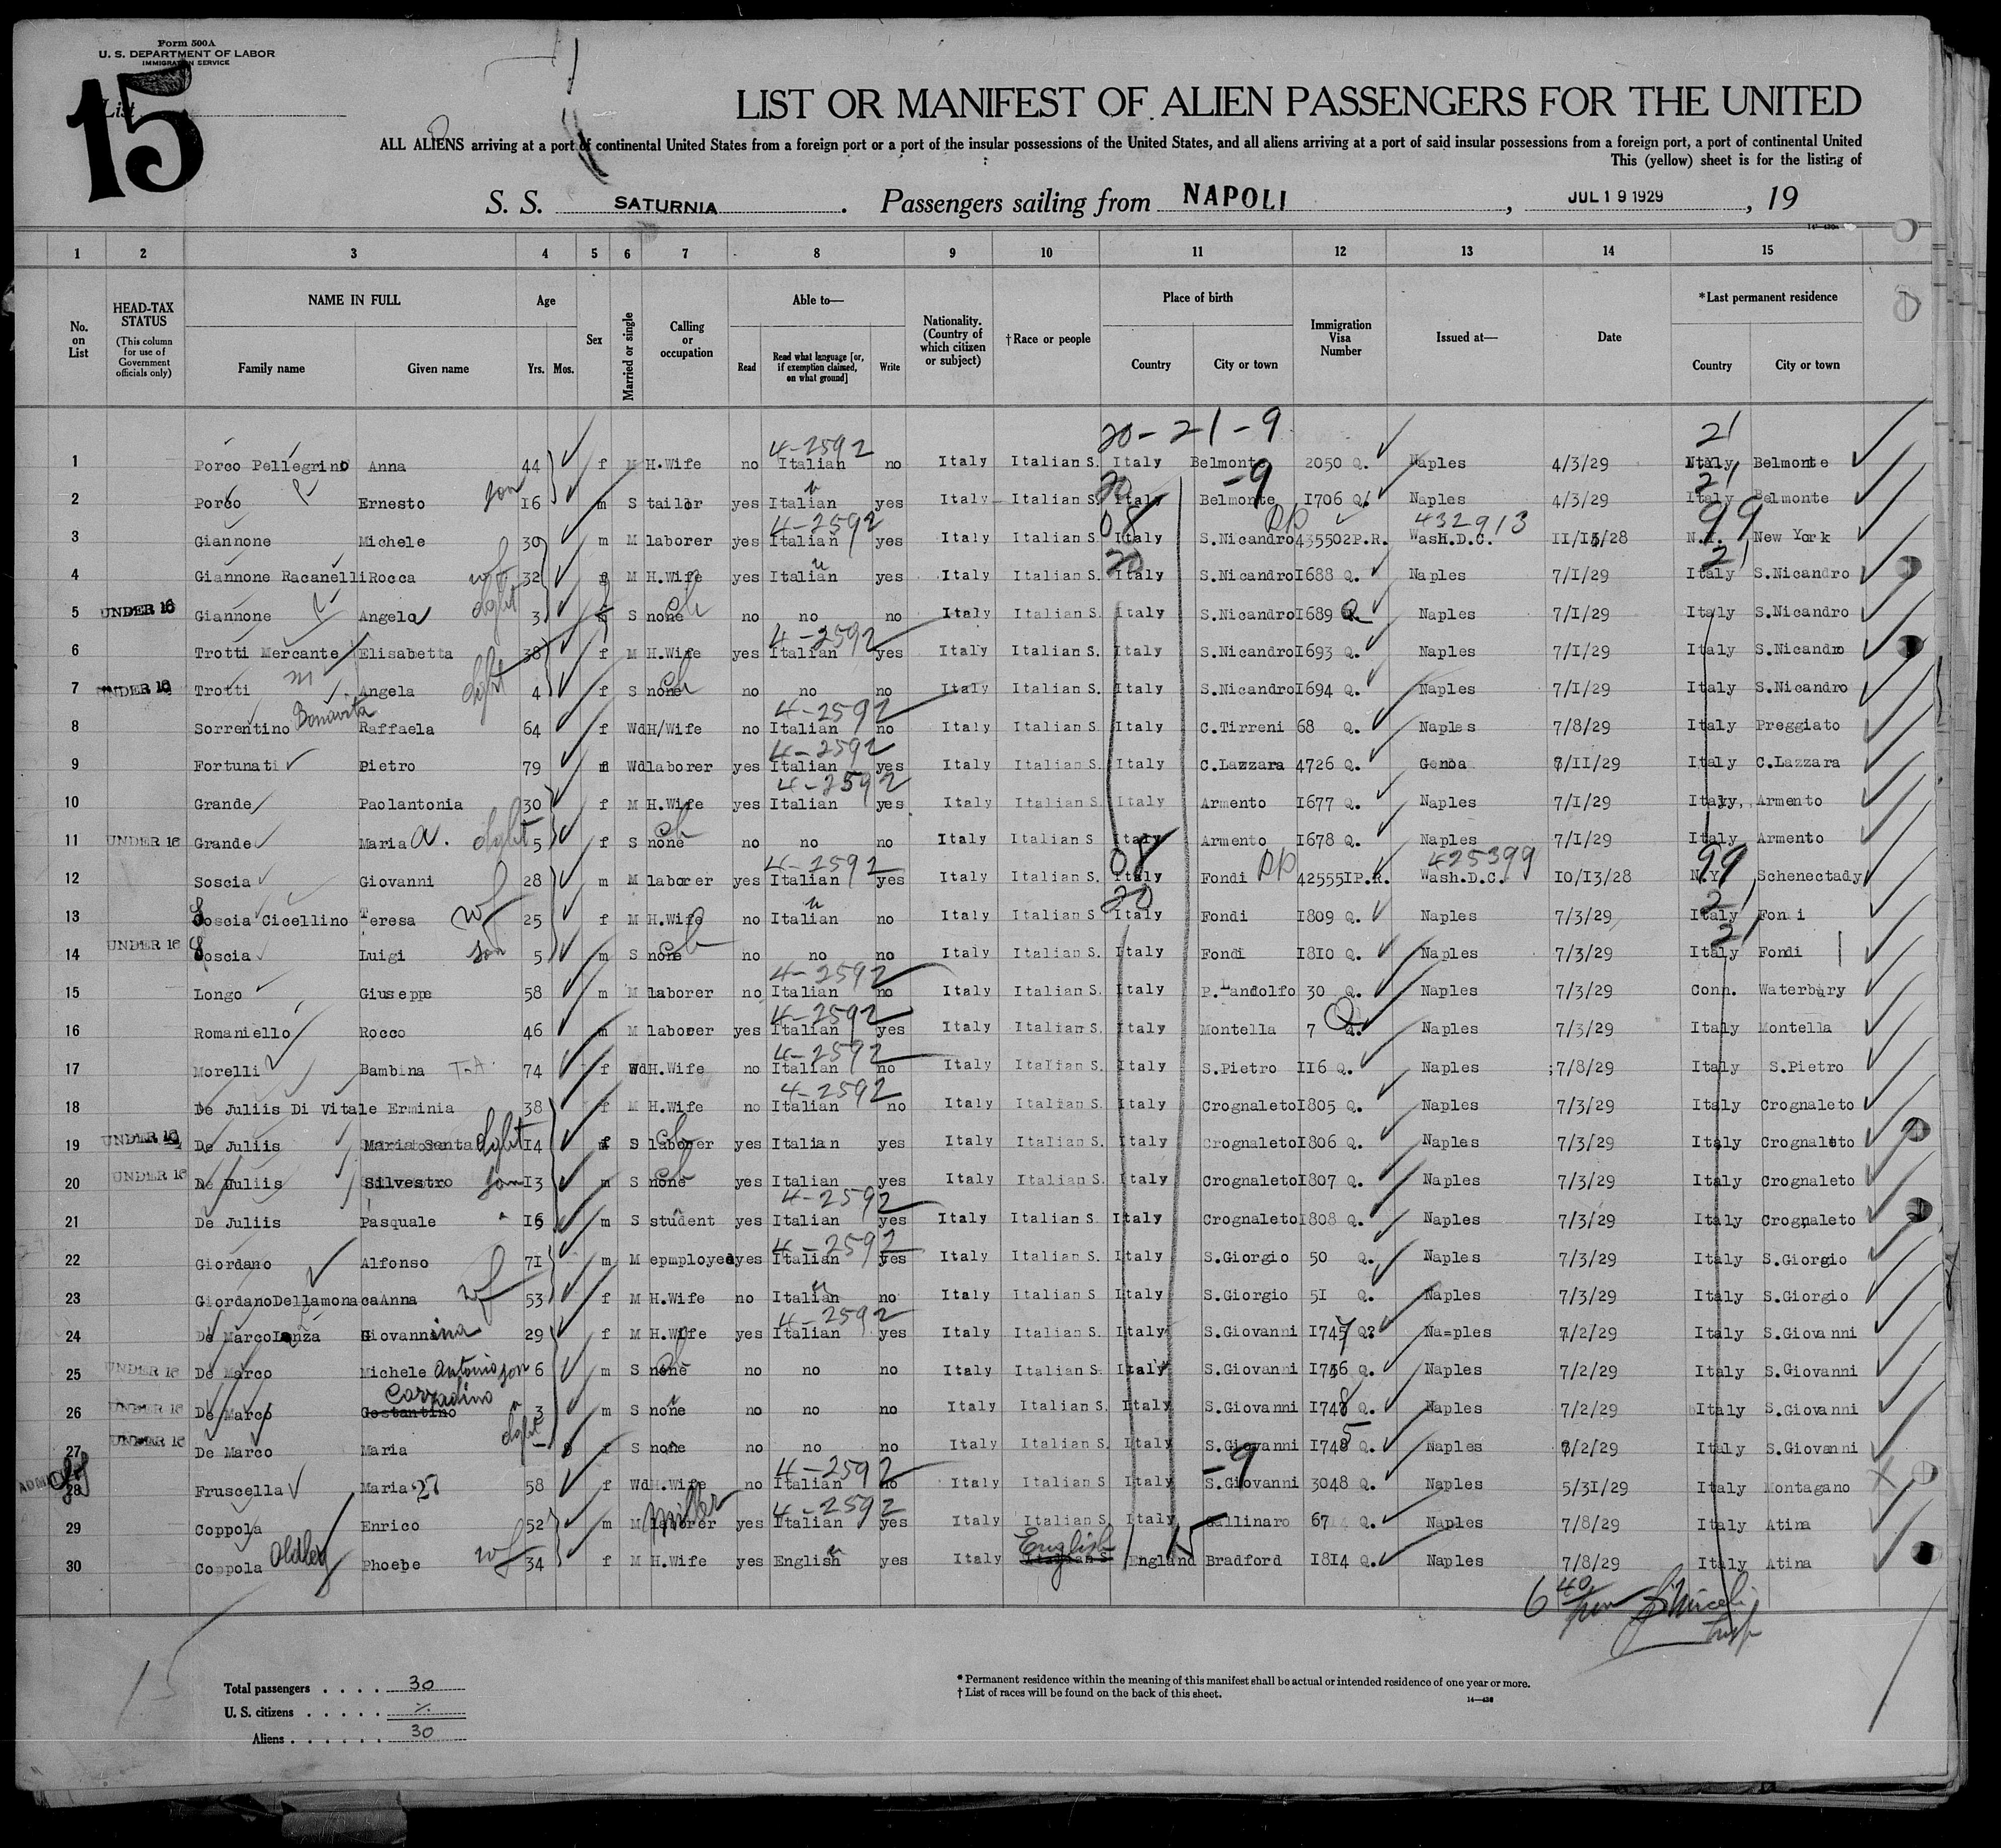 Form 500A
U. S. DEPARTMENT OF LABOR
IMMIGRATION SERVICE
List 15
LIST OR MANIFEST OF ALIEN PASSENGERS FOR THE UNITED
ALL ALIENS arriving at a port of continental United States from a foreign port or a port of the insular possessions of the United States, and all aliens arriving at a port of said insular possessions from a foreign port, a port of continental United
This (yellow) sheet is for the listing of
S. S. SATURNIA . Passengers sailing from NAPOLI , JUL 19 1929 , 19
1 2 3 4 5 6 7 8 9 10 11 12 13 14 15
No. on List HEAD-TAX STATUS (This column for use of Government officials only) NAME IN FULL Family name Given name Age Yrs. Mos. Sex Married or single Calling or occupation Able to— Read Read what language [or, if exemption claimed, on what ground] Write Nationality. (Country of which citizen or subject) †Race or people Place of birth Country City or town Immigration Visa Number Issued at— Date *Last permanent residence Country City or town
20-21-9 21
4-2592
1 Porco Pellegrino Anna 44 f M H.Wife no Italian no Italy Italian S. Italy Belmonte 2050 Q. Naples 4/3/29 Italy Belmonte
2 Porco Ernesto son 16 m S tailor yes Italian yes Italy Italian S. Italy Belmonte 1706 Q. Naples 4/3/29 Italy Belmonte
4-2592 08 RP 432913 99
3 Giannone Michele 30 m M laborer yes Italian yes Italy Italian S. Italy S.Nicandro 435502P.R. Wash.D.C. 11/15/28 N.Y. New York
4 Giannone Racanelli Rocca wf 32 M H.Wife yes Italian yes Italy Italian S. Italy S.Nicandro 1688 Q. Naples 7/1/29 Italy S.Nicandro
5 UNDER 16 Giannone Angela dght 3 S none no no no Italy Italian S. Italy S.Nicandro 1689 Q Naples 7/1/29 Italy S.Nicandro
4-2592
6 Trotti Mercante Elisabetta 38 f M H.Wife yes Italian yes Italy Italian S. Italy S.Nicandro 1693 Q. Naples 7/1/29 Italy S.Nicandro
7 UNDER 16 Trotti Angela dght 4 f S none no no no Italy Italian S. Italy S.Nicandro 1694 Q. Naples 7/1/29 Italy S.Nicandro
4-2592
8 Sorrentino Bonavita Raffaela 64 f Wd H/Wife no Italian no Italy Italian S. Italy C.Tirreni 68 Q. Naples 7/8/29 Italy Preggiato
4-2592
9 Fortunati Pietro 79 m Wd laborer yes Italian yes Italy Italian S. Italy C.Lazzara 4726 Q. Genoa 7/11/29 Italy C.Lazzara
4-2592
10 Grande Paolantonia 30 f M H.Wife yes Italian yes Italy Italian S. Italy Armento 1677 Q. Naples 7/1/29 Italy, Armento
11 UNDER 16 Grande Maria A. dght 5 f S none no no no Italy Italian S Italy Armento 1678 Q. Naples 7/1/29 Italy Armento
4-2592 08 RP 425399 99
12 Soscia Giovanni 28 m M laborer yes Italian yes Italy Italian S. Italy Fondi 425551P.R. Wash.D.C. 10/13/28 N.Y. Schenectady
13 Soscia Cicellino Teresa wf 25 f M H.Wife no Italian no Italy Italian S Italy Fondi 1809 Q. Naples 7/3/29 Italy Fon i
14 UNDER 16 Soscia Luigi son 5 m S none no no no Italy Italian S. Italy Fondi 1810 Q. Naples 7/3/29 Italy Fondi
4-2592
15 Longo Giuseppe 58 m M laborer no Italian no Italy Italian S. Italy P.Landolfo 30 Q. Naples 7/3/29 Conn. Waterbury
4-2592
16 Romaniello Rocco 46 m M laborer yes Italian yes Italy Italian S. Italy Montella 7 Q. Naples 7/3/29 Italy Montella
4-2592
17 Morelli Bambina 74 f Wd H.Wife no Italian no Italy Italian S. Italy S.Pietro 116 Q. Naples 7/8/29 Italy S.Pietro
4-2592
18 De Juliis Di Vitale Erminia 38 f M H.Wife no Italian no Italy Italian S. Italy Crognaleto 1805 Q. Naples 7/3/29 Italy Crognaleto
19 UNDER 16 De Juliis Maria Santa dght 14 f S laborer yes Italian yes Italy Italian S. Italy Crognaleto 1806 Q. Naples 7/3/29 Italy Crognaleto
20 UNDER 16 De Juliis Silvestro son 13 m S none yes Italian yes Italy Italian S. Italy Crognaleto 1807 Q. Naples 7/3/29 Italy Crognaleto
4-2592
21 De Juliis Pasquale " 16 m S student yes Italian yes Italy Italian S. Italy Crognaleto 1808 Q. Naples 7/3/29 Italy Crognaleto
4-2592
22 Giordano Alfonso 71 m M epmployed yes Italian yes Italy Italian S. Italy S.Giorgio 50 Q. Naples 7/3/29 Italy S.Giorgio
23 Giordano Dellamonaca Anna wf 53 f M H.Wife no Italian no Italy Italian S Italy S.Giorgio 51 Q. Naples 7/3/29 Italy S.Giorgio
4-2592
24 De Marco Lanza Giovannina 29 f M H.Wife yes Italian yes Italy Italian S. Italy S.Giovanni 1747 Q. Na=ples 7/2/29 Italy S.Giovanni
25 UNDER 16 De Marco Michele Antonio son 6 m S none no no no Italy Italian S. Italy S.Giovanni 1746 Q. Naples 7/2/29 Italy S.Giovanni
26 UNDER 16 De Marco Costantino Corradino " 3 m S none no no no Italy Italian S. Italy S.Giovanni 1748 Q. Naples 7/2/29 Italy S.Giovanni
27 UNDER 16 De Marco Maria dght - f S none no no no Italy Italian S. Italy S.Giovanni 1745 Q. Naples 7/2/29 Italy S.Giovanni
4-2592 -9
28 ADMITTED Fruscella Maria 27 58 f Wd H.Wife no Italian no Italy Italian S Italy S.Giovanni 3048 Q. Naples 5/31/29 Italy Montagano
miller 4-2592
29 Coppola Enrico 52 m M laborer yes Italian yes Italy Italian S. Italy Gallinaro 67 Q. Naples 7/8/29 Italy Atina
30 Coppola Oldley Phoebe wf 34 f M H.Wife yes English yes Italy Italian S English England 15 Bradford 1814 Q. Naples 7/8/29 Italy Atina
6 40
Insp
15
Total passengers . . . . 30
U. S. citizens . . . . .
Aliens . . . . . . 30
* Permanent residence within the meaning of this manifest shall be actual or intended residence of one year or more.
† List of races will be found on the back of this sheet.
14—430